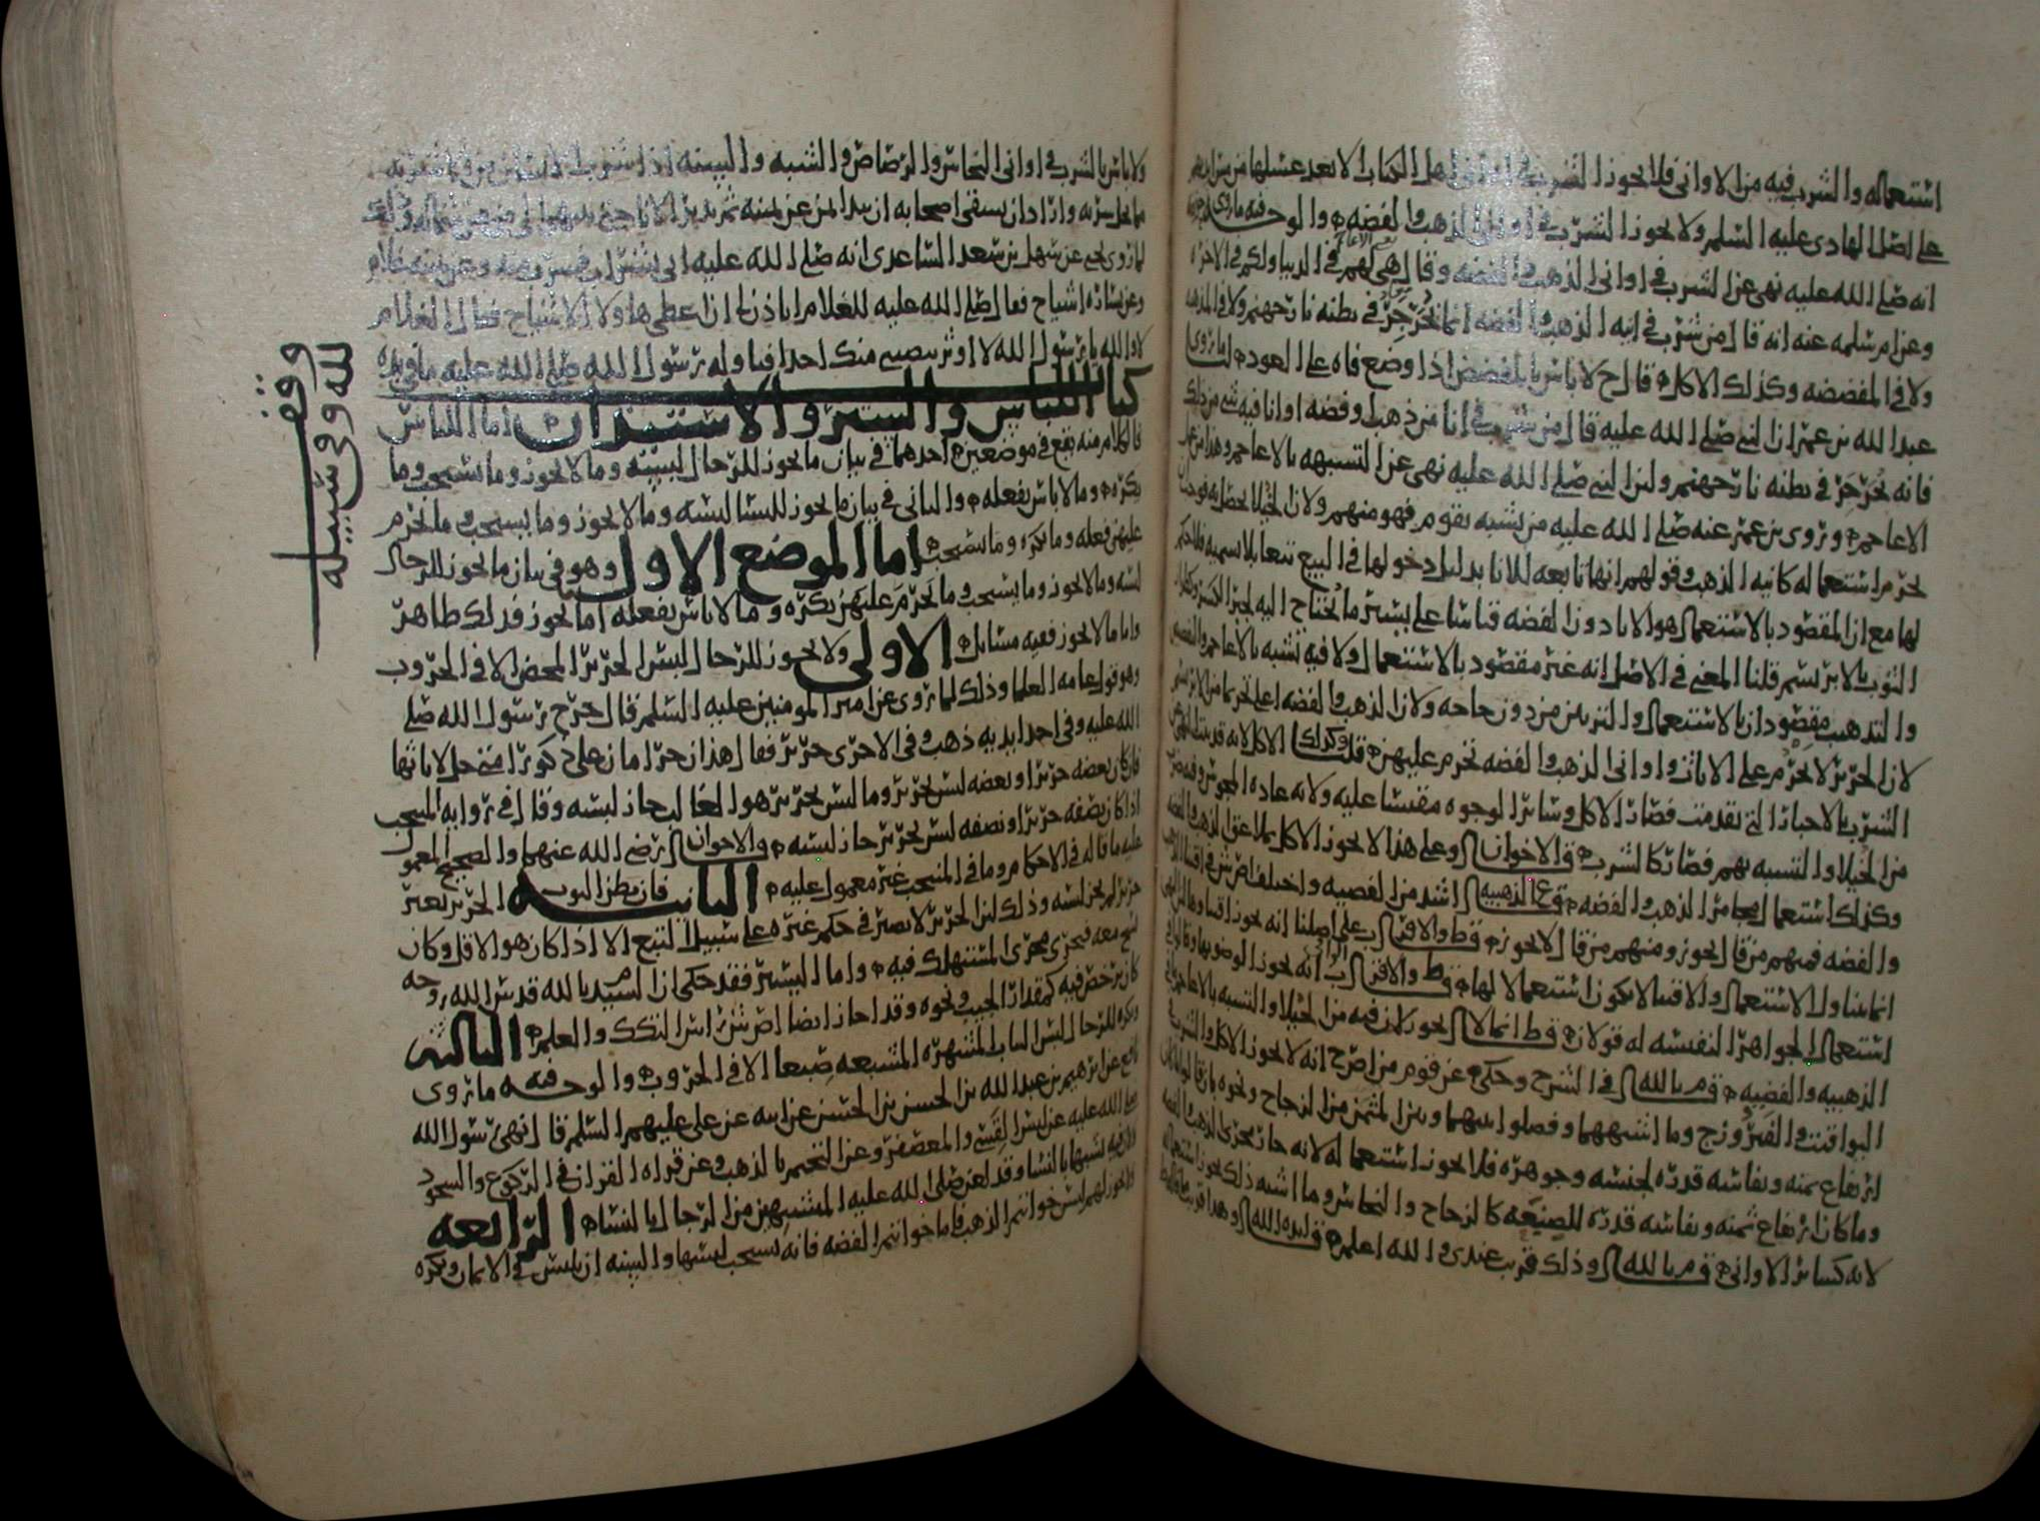 استعماله والشرب فيه من الاوانى فلا يجوز الشرب فى اوانى اهل الكتاب الا بعد غسلها من
على اصل الهادى عليه السلم ولا يجوز الشرب فى اوانى الذهب والفضه والوجه فيه ما روى
انه صلى الله عليه نهى عن الشرب فى اوانى الذهب والفضه وقال هى لهم فى الدنيا ولكم فى الاخره
وعن ام سلمه عنه انه قال من شرب فى انيه الذهب والفضه انما يجرجر فى بطنه نار جهنم ولا فى المذهبه
ولا فى المفضضه وكذلك الاكل قال ح لا باس بالمفضض اذا وضع فاه على العود لما روى
عبد الله بن عمر ان النبى صلى الله عليه قال من شرب فى انا من ذهب او فضه او انا فيه شى من ذلك
فانه يجرجر فى بطنه نار جهنم ولان النبى صلى الله عليه نهى عن التشبيه بالاعاجم وهذا من
الاعاجم وروى بن عمر عنه صلى الله عليه من تشبه بقوم فهو منهم ولان الخيلا يحصل به فوجب
تحريم استعماله كانيه الذهب وقولهم انها تابعه للانا بدليل دخولها فى البيع تبعا بلا تسميه
لها مع ان المقصود بالاستعمال هو الانا دون الفضه قياسا على يسير ما يحتاج اليه لجبر الكسر
الثوب بالابريسم قلنا المعنى فى الاصل انه غير مقصود بالاستعمال ولا فيه تشبه بالاعاجم والفضه
والتذهيب مقصودان بالاستعمال والتزيين من دون حاجه ولان الذهب والفضه اغلى تحريما من الابريسم
لان الحرير لا يحرم على الاناث واوانى الذهب والفضه تحرم عليهن قلت وكذلك الاكل لانه قد
الشرب بالاخبار التى تقدمت فصار الاكل وسائر الوجوه مقيسا عليه ولانه عاده
من الخيلا والتشبه بهم فصار كالشرب ق الاخوان وعلى هذا لا يجوز الاكل بملاعق الذهب والفضه
وكذلك استعمال المجامر الذهب والفضه ق ع الذهبيه اشد من الفضيه واختلف اص ش فى اقتنا
والفضه فمنهم من قال يجوز ومنهم من قال لا يجوز ق ط والاقرب على اصلنا انه يجوز اقتناوها
انما يتناول الاستعمال والاقتنا لا يكون استعمالا لها ق ط والاقرب انه يجوز الوضو بها
استعمال الجواهر النفيسه له قولان ق ط انما لا يجوز لان فيه من الخيلا والتشبه بالاعاجم
الذهبيه والفضيه ق م بالله فى الشرح وحكى عن قوم من اص ح انه لا يجوز الاكل والشرب
اليواقيت والفيروزج وما اشبههما وفصلوا بينهما وبين المثمن من الزجاج ونحوه بان قالوا
ارتفاع ثمنه ونفاسه قدره لجنسه وجوهره فلا يجوز استعماله لانه جار مجرى الذهب والفضه
وما كان ارتفاع ثمنه ونفاسه قدره للصنيعه كالزجاج والنحاس وما اشبه ذلك يجوز استعماله
لانه كسائر الاوانى ق م بالله وذلك قريب عندى والله اعلم ق ايده الله وهذا قريب
ولا باس بالشرب فى اوانى النحاس والرصاص والشبه والسنه اذا شرب
مما يحل شربه واراد ان يسقى اصحابه ان يبدا بمن عن يمينه ثم يدير الانا حتى ينتهى الى من عن شماله وذلك
لما روى عن سهل بن سعد الساعدى انه صلى الله عليه اتى بشراب فشرب منه وعن يمينه غلام
وعن يساره اشياخ فقال صلى الله عليه للغلام اتاذن لى ان اعطى هاولا الاشياخ فقال الغلام
لا والله يا رسول الله لا اوثر بنصيبى منك احدا فناوله رسول الله صلى الله عليه ما فى يده
كتاب اللباس والستر والاستئذان اما اللباس
فالكلام منه يقع فى موضعين احدهما فى بيان ما يجوز للرجال لبسه وما لا يجوز وما يستحب وما
يكره وما لا باس بفعله والثانى فى بيان ما يجوز للنسا لبسه وما لا يجوز وما يستحب وما يحرم
عليهن فعله وما يكره وما يستحب اما الموضع الاول وهو فى بيان ما يجوز للرجال
لبسه وما لا يجوز وما يستحب وما يحرم عليهن يكره وما لا باس بفعله اما ما يجوز فذلك ظاهر
واما ما لا يجوز ففيه مسائل الاولى ولا يجوز للرجال لبس الحرير المحض الا فى الحروب
وهو قول عامه العلما وذلك لما روى عن امير المومنين عليه السلم قال خرج رسول الله صلى
الله عليه وفى احدا يديه ذهب وفى الاخرى حرير فقال هذان حرامان على ذكور امتى حل لاناثها
فان كان بعضه حريرا وبعضه ليس بحرير وما ليس بحرير هو الغالب جاز لبسه وقال فى روايه المنتخب
اذا كان نصفه حريرا ونصفه ليس بحرير جاز لبسه والاخوان رضى الله عنهما والصحيح المعمول
عليه ما قاله فى الاحكام وما فى المنتخب غير معمول عليه الثانيه فان بطن الثوب الحرير بغير
حرير لم يجز لبسه وذلك لان الحرير لا يصير فى حكم غيره على سبيل التبع الا اذا كان هو الاقل وكان
نسج معه فيجرى مجرى المستهلك فيه واما اليسير فقد حكى ان السيد بالله قدس الله روحه
كان يرخص فيه كمقدار الجيب ونحوه وقد اجاز ايضا اص ش لبس التكك والعلم الثالثه
ويكره للرجال لبس الثياب المشهره المشبعه صبغا الا فى الحروب والوجه فيه ما روى
نافع عن ابرهيم بن عبد الله بن الحسن بن الحسن عن ابيه عن على عليهم السلم قال نهى رسول الله
صلى الله عليه عن لبس القسى والمعصفر وعن التختم بالذهب وعن قراه القران فى الركوع والسجود
ولان فيه تشبها بالنسا وقد لعن صلى الله عليه المتشبهين من الرجال بالنسا الرابعه
ولا يجوز لهم لبس خواتم الذهب فاما خواتم الفضه فانه يستحب لبسها والسنه ان يلبس فى الايمان ويكره
وقف
لله وفى سبيله